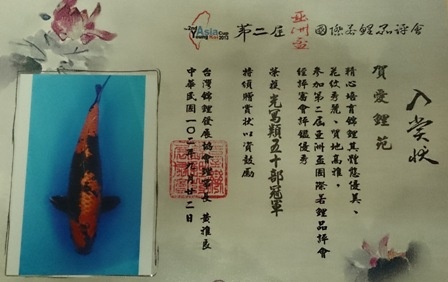 Asia Cup
Young Koi 2013
第二屆亞洲盃國際若鯉品評會
入賞狀
賀愛鯉苑
精心培育錦鯉其體態優美、
花紋秀麗、質地高雅。
參加第二屆亞洲盃國際若鯉品評會
經評審會評鑑優秀
榮獲光寫類五十部冠軍
特頒贈賞狀以資鼓勵
台灣錦鯉發展協會理事長 黃雅良
中華民國一〇二年九月廿二日